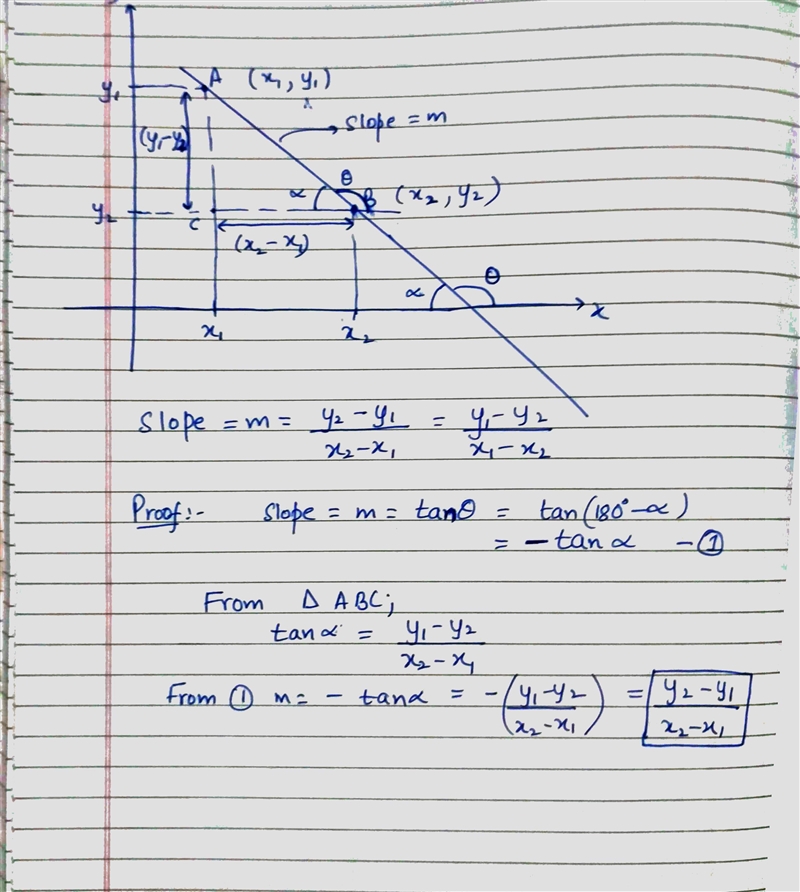 A (x₁, y₁)
y₁
(y₁-y₂)
Slope = m
θ
α
B (x₂, y₂)
y₂
C
(x₂ - x₁)
θ
α
x
x₁
x₂
Slope = m = (y₂ - y₁)/(x₂ - x₁) = (y₁ - y₂)/(x₁ - x₂)
Proof:- Slope = m = tanθ = tan(180° - α)
= - tan α - ①
From Δ ABC;
tan α = (y₁ - y₂)/(x₂ - x₁)
From ① m = - tanα = -((y₁-y₂)/(x₂-x₁)) = (y₂ - y₁)/(x₂ - x₁)